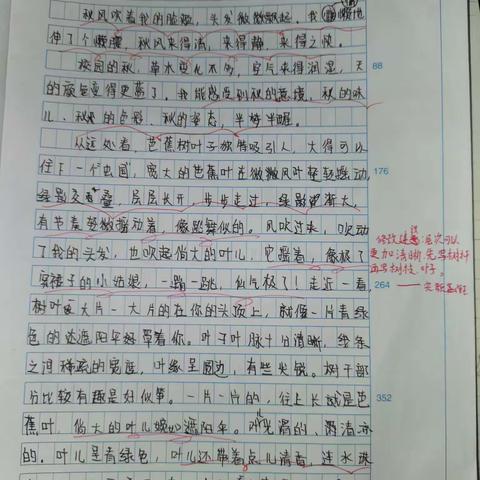 秋风吹着我的脸颊，头发微微飘起。我懒懒地
伸了个懒腰，秋风来得清，来得静，来得之快。
校园的秋，草木变化不多，空气来得润湿，天
的颜色变得更蓝了。我能感受到秋的意境，秋的味
儿，秋的色彩，秋的姿态，半梦半醒。
88
从远处看，芭蕉树叶子放特吸引人，大得可以
住下一个虫国，宽大的芭蕉叶在微微风叶轻轻摇动，
176
绿影交叠，层层长开，步步走过，绿影渐大，
有节奏轻微摆动着，像跳舞似的。风吹过来，吹动
了我的头发，也吹起倘大的叶儿，它跳着，像极了
穿裙子的小姑娘，一蹦一跳，仙气极了！走近一看，
264
修改建议：层次可以
更加清晰，先写树杆
再写树枝、叶子。
树叶大片一大片的在你的头顶上，就像一片青绿
色的遮阳伞好罩着你。叶子叶脉十分清晰，线条
之间稀疏的宽度，叶缘呈圆边，有些尖锐。树干部
分比较有趣是好似笋。一片一片的，往上长就是芭
352
蕉叶，倘大的叶儿
的。叶儿是青绿色，叶儿还带着点儿清香，连水珠